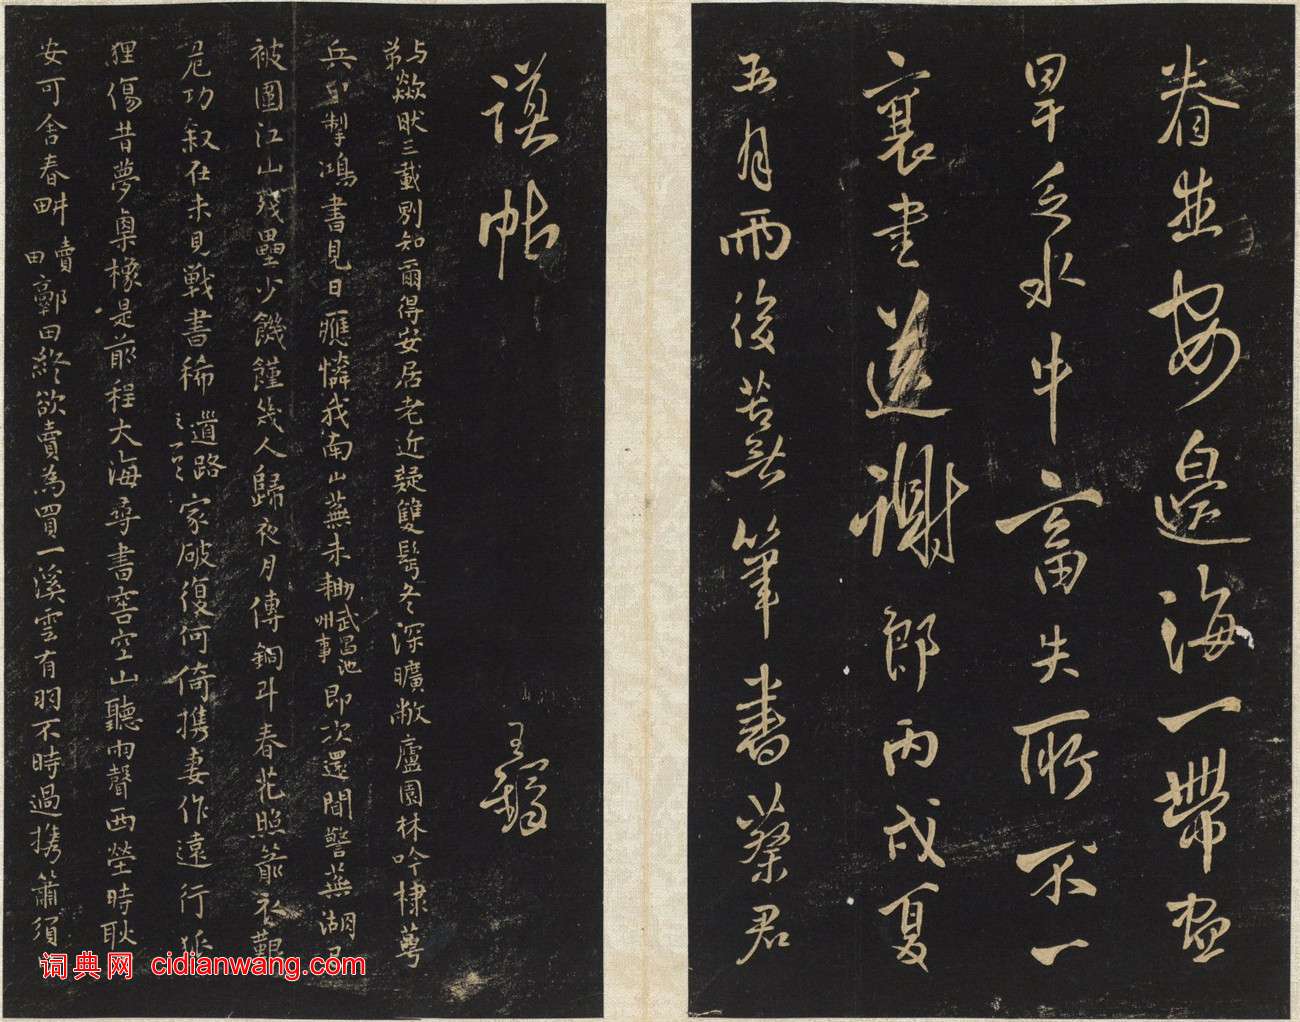 眷生安邊海一帶思
旱乏水牛畜失所不一
襄書送謝郎丙戌夏
五月雨後苦無筆書蔡君
謨帖 王鐸
与弟歘眹三載別知爾得安居老近疑雙髩冬深曠敞廬園林吟棣萼
兵 掣鴻書見日應憐我南山蕪未耡武昌池州事即次還聞警蕪湖
被圍江山殘壘少饑饉幾人歸夜月傳銅斗春花照箭衣艱
危功叙在未見戰書稀 道路之一 家破復何倚携妻作遠行
狸傷昔夢臬橡是前程大海尋書窖空山聽雨聲西塋時耿
安可舍春畊 賣田 鄠田終欲賣為買一溪雲有羽不時過携簫須
词典网 cidianwang.com